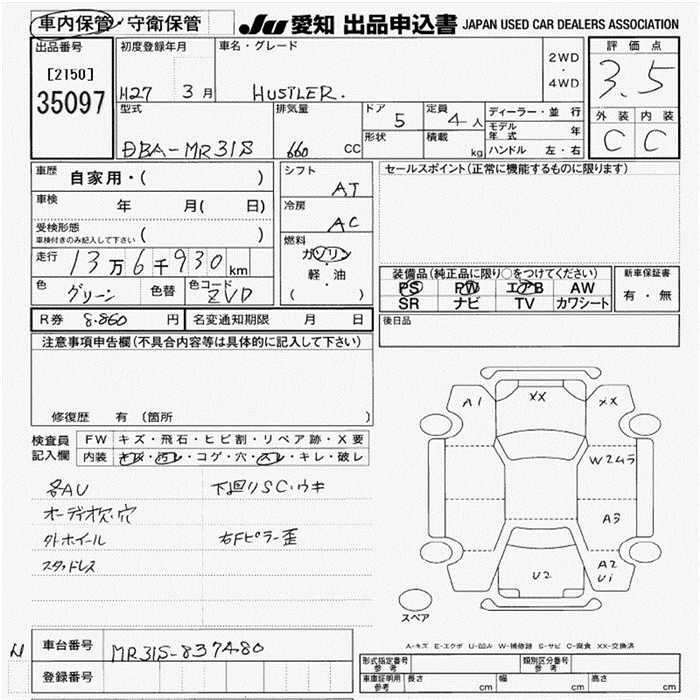 車内保管・守衛保管
JU 愛知 出品申込書 JAPAN USED CAR DEALERS ASSOCIATION
出品番号
[2150]
35097
初度登録年月
H27 3月
車名・グレード
HUSTLER.
2WD
・
4WD
評価点
3.5
外装 内装
C C
型式
DBA-MR31S
排気量
660 CC
ドア
5
定員
4人
形状
積載
kg
ディーラー・並行
モデル年式 年
ハンドル 左・右
車歴
自家用・( )
車検
年 月( 日)
受検形態
車検付きのみ記入して下さい ( )
走行
13万6千930km
色
グリーン
色替
色コード
ZVD
シフト
AT
冷房
AC
燃料
ガソリン
・
軽・油
( )
セールスポイント(正常に機能するものに限ります)
装備品(純正品に限り○をつけてください)
PS PW エアB AW
SR ナビ TV カワシート
新車保証書
有・無
R券 8.860 円
名変通知期限 月 日
後日品
注意事項申告欄(不具合内容等は具体的に記入して下さい)
修復歴 有 〔箇所 〕
検査員記入欄
FW キズ・飛石・ヒビ割・リペア跡・X要
内装 キズ・汚レ・コゲ・穴・スレ・キレ・破レ
各AU
下回りSC・ウキ
オーディオ欠・穴
外ホイール
右Fピラー歪
スタッドレス
A1
XX
XX
W2ムラ
A3
A2
U1
U2
スペア
A-キズ E-エクボ U-凹み W-補修跡 S-サビ C-腐食 XX-交換済
車台番号
MR31S-837480
登録番号
形式指定番号
参考
類別区分番号
参考
車庫証明用
参考
長さ cm
幅 cm
高さ cm